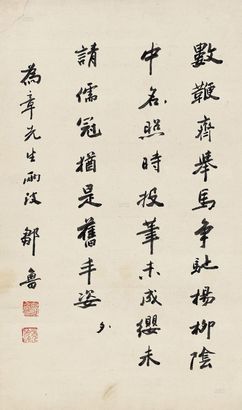 數鞭齊舉馬爭馳楊柳陰
中名照時投筆未成纓未
請儒冠猶是舊丰姿
為章先生兩政
鄒魯